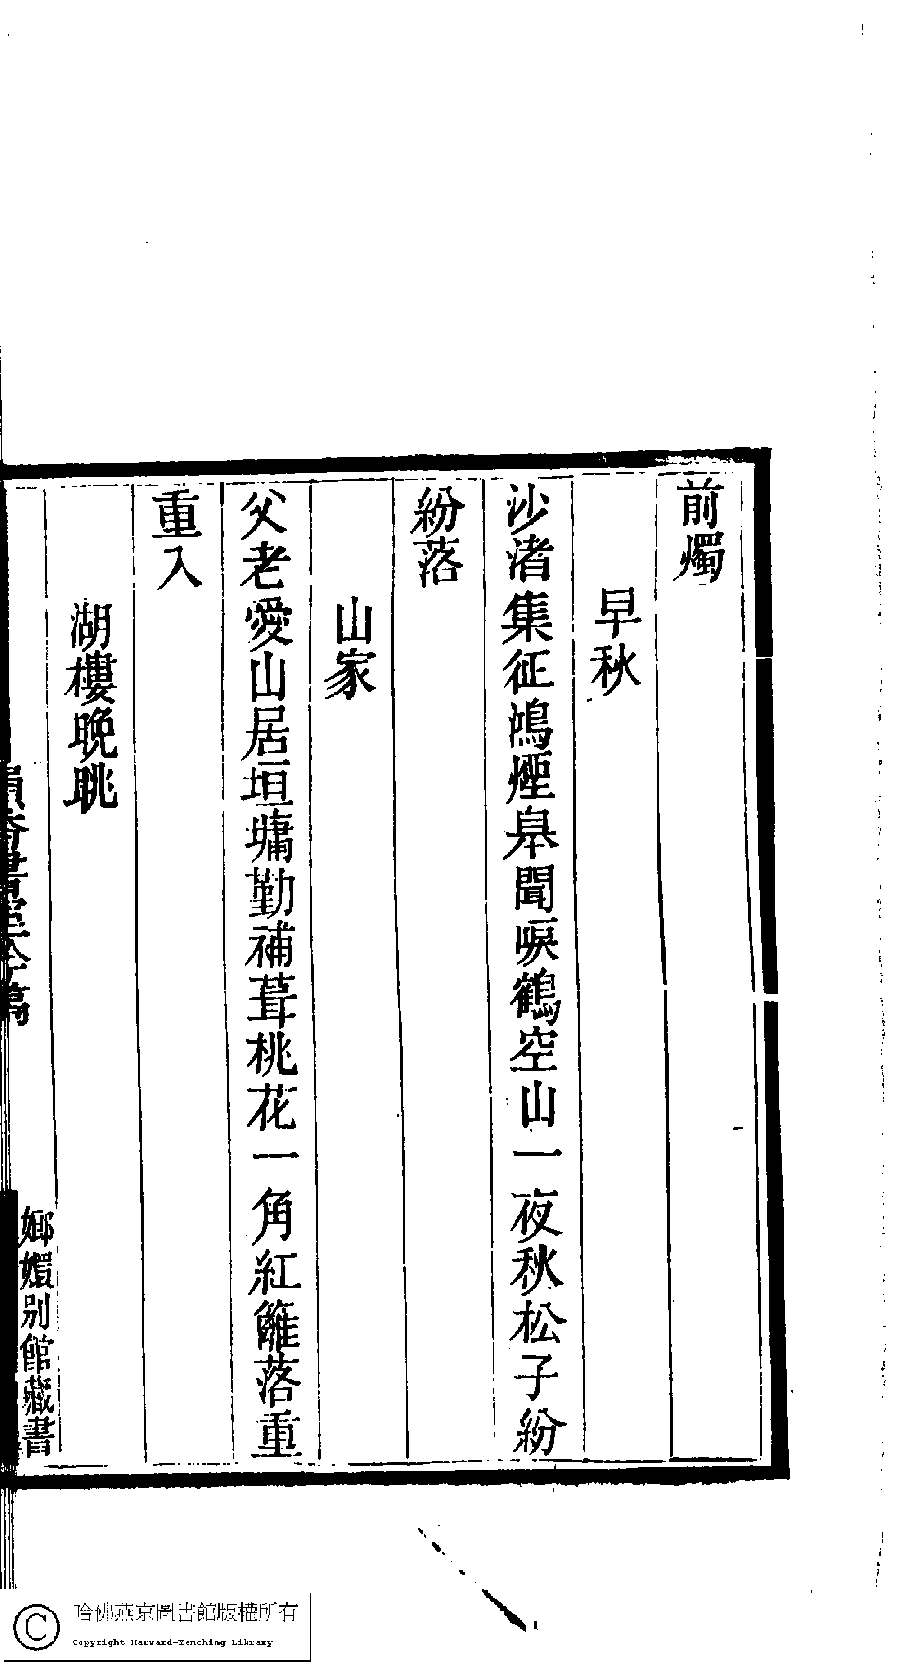 前燭
早秋
沙渚集征鴻煙臯聞唳鶴空山一夜秋松子紛
紛落
山家
父老愛山居垣墉勤補葺桃花一角紅籬落重
重入
湖樓晚眺
嫏嬛别館藏書
哈佛燕京圖書館版權所有
Copyright Harvard-Yenching Library